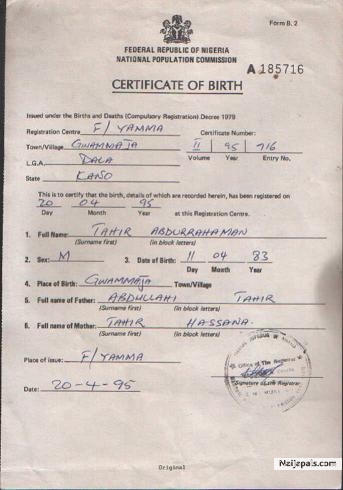 Form B. 2
FEDERAL REPUBLIC OF NIGERIA
NATIONAL POPULATION COMMISSION
A 185716
CERTIFICATE OF BIRTH
Issued under the Births and Deaths (Compulsory Registration) Decree 1979
Registration Centre F/YAMMA Certificate Number:
Town/Village GWAMMAJA II 95 716
L.G.A. DALA Volume Year Entry No.
State KANO
This is to certify that the birth, details of which are recorded herein, has been registered on
20 04 95
Day Month Year at this Registration Centre.
1. Full Name: TAHIR ABDURRAHAMAN
(Surname first) (in block letters)
2. Sex: M 3. Date of Birth: 11 04 83
Day Month Year
4. Place of Birth: GWAMMAJA Town/Village
5. Full name of Father: ABDULLAHI TAHIR
(Surname first) (in block letters)
6. Full name of Mother: TAHIR HASSANA.
(Surname first) (in block letters)
Place of issue: F/YAMMA
Office of The Registrar
Signature of the Registrar
Date: 20-4-95
Original
Naijapals.com